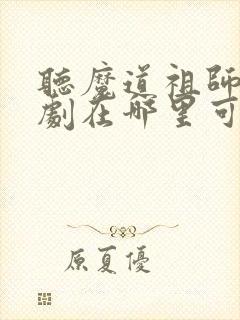 聽魔道祖師
劇在哪里可
原夏優